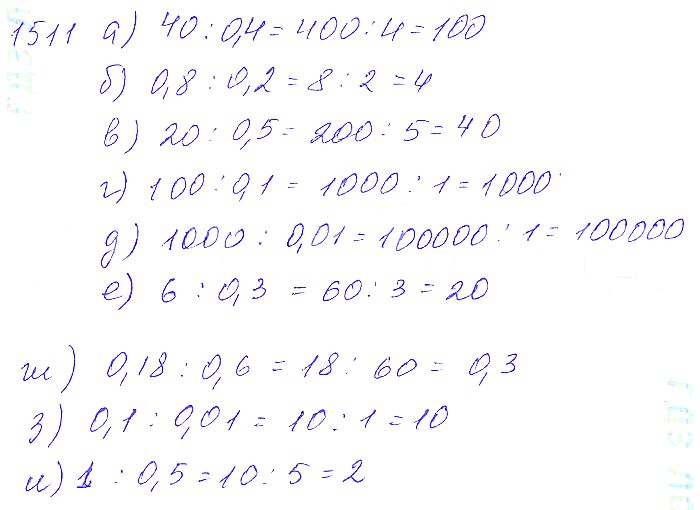 1511 а) 40 : 0,4 = 400 : 4 = 100
б) 0,8 : 0,2 = 8 : 2 = 4
в) 20 : 0,5 = 200 : 5 = 40
г) 100 : 0,1 = 1000 : 1 = 1000
д) 1000 : 0,01 = 100000 : 1 = 100000
е) 6 : 0,3 = 60 : 3 = 20
ж) 0,18 : 0,6 = 18 : 60 = 0,3
з) 0,1 : 0,01 = 10 : 1 = 10
и) 1 : 0,5 = 10 : 5 = 2